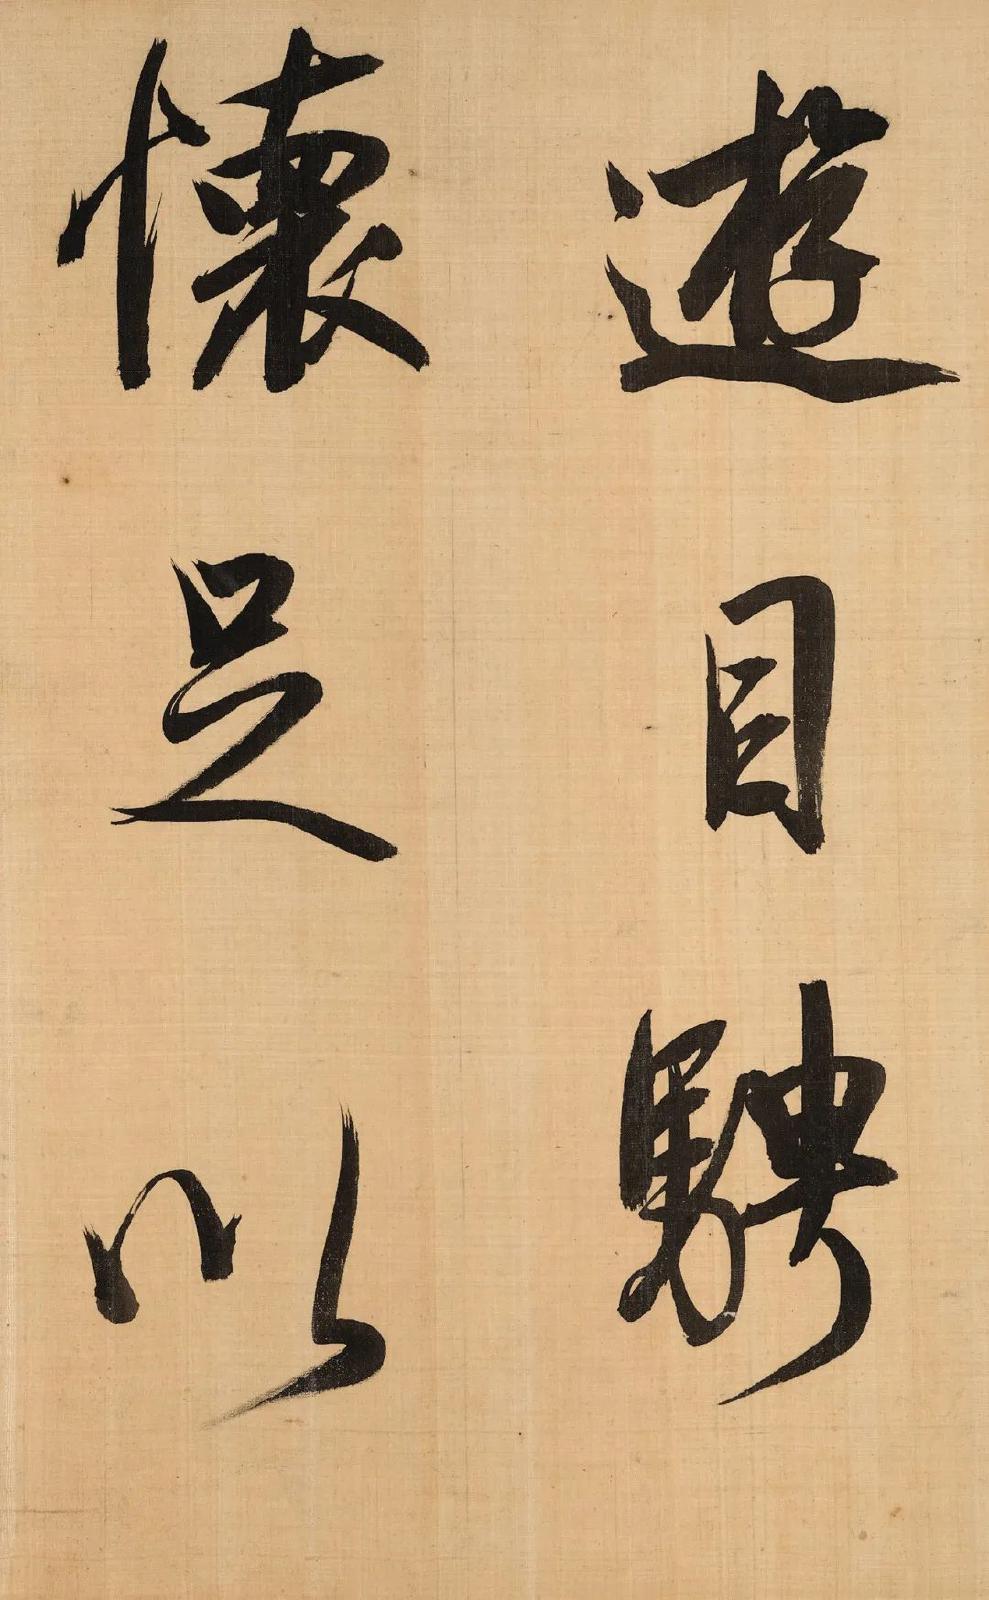 遊目騁
懷足以